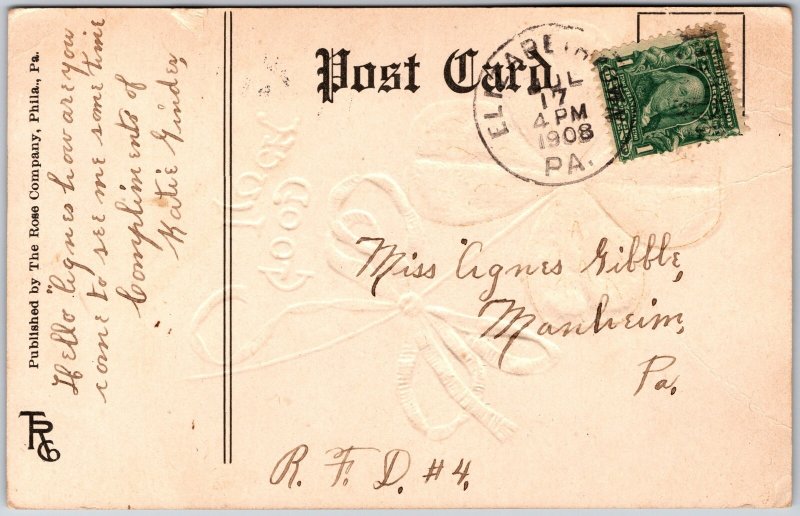 Published by The Rose Company, Phila., Pa.
Hello Agnes how are you
come to see me some time
Compliments of
Katie Ginder,
TRC
Post Card
JUL
17
4 PM
1908
PA.
1
1
Miss Agnes Gibble,
Manheim,
Pa.
R. F. D. #4.
Good Luck